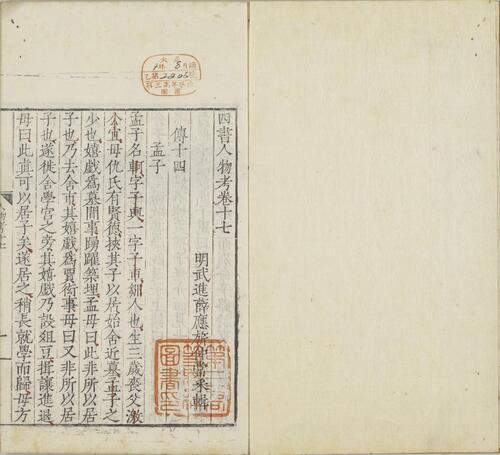 四書人物考卷十七
明武進薛應旂仲常采輯
傳十四
孟子
孟子名軻字子輿一字子車鄒人也生三歲喪父激
公宜母仇氏有賢德挾其子以居始舍近墓孟子之
少也嬉戲為墓間事踴躍築埋孟母曰此非所以居
子也乃去舍市其嬉戲為賈衒事母曰又非所以居
子也遂徙舍學宮之旁其嬉戲乃設俎豆揖讓進退
母曰此真可以居子矣遂居之稍長就學而歸母方